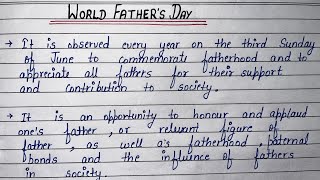 WORLD FATHER'S DAY
→ It is observed every year on the third Sunday
of June to commemorate fatherhood and to
appreciate all fathers for their support
and contribution to society.
→ It is an opportunity to honour and applaud
one's father, or relevent figure of
father, as well as fatherhood, paternal
bonds and the influence of fathers
in society.